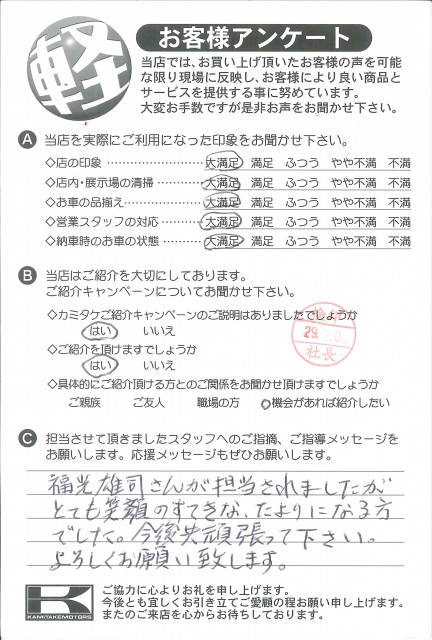 軽
お客様アンケート
当店では、お買い上げ頂いたお客様の声を可能
な限り現場に反映し、お客様により良い商品と
サービスを提供する事に努めています。
大変お手数ですが是非お声をお聞かせ下さい。
A 当店を実際にご利用になった印象をお聞かせ下さい。
◇店の印象 大満足 満足 ふつう やや不満 不満
◇店内・展示場の清掃 大満足 満足 ふつう やや不満 不満
◇お車の品揃え 大満足 満足 ふつう やや不満 不満
◇営業スタッフの対応 大満足 満足 ふつう やや不満 不満
◇納車時のお車の状態 大満足 満足 ふつう やや不満 不満
B 当店はご紹介を大切にしております。
ご紹介キャンペーンについてお聞かせ下さい。
◇カミタケご紹介キャンペーンのご説明はありましたでしょうか
はい いいえ
29
社長
◇ご紹介を頂けますでしょうか
はい いいえ
◇具体的にご紹介頂ける方とのご関係をお聞かせ頂けますでしょうか
ご親族 ご友人 職場の方 機会があれば紹介したい
C 担当させて頂きましたスタッフへのご指摘、ご指導メッセージを
お願いします。応援メッセージもぜひお願いします。
福光雄司さんが担当されましたが
とても笑顔のすてきな、たよりになる方
でした。今後共頑張って下さい。
よろしくお願い致します。
K
KAMITAKEMOTORS
ご協力に心よりお礼を申し上げます。
今後とも宜しくお引き立てご愛顧の程お願い申し上げます。
またのご来店を心からお待ちしております。